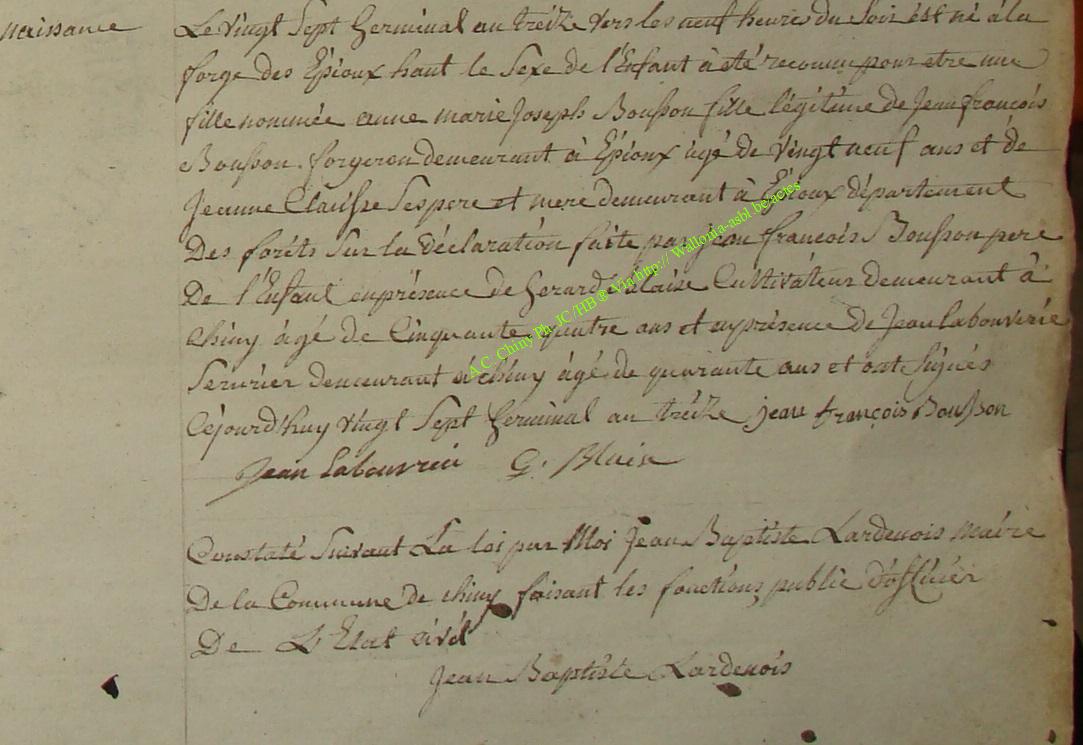 naissance
Le vingt Sept Germinal an treize vers les neuf heures du Soir est né à la
forge des Epioux haut le Sexe de l'Enfant à eté reconnu pour etre une
fille nommée anne marie Joseph Bousson fille légitime de Jean françois
Bousson forgeron demeurant à Epioux agé de vingt neuf ans et de
Jeanne Claisse Ses pere et mere demeurant à Epioux département
Des forêts Sur la déclaration faite par jean françois Bousson pere
De l'Enfant en présence de Gerard Blaise Cultivateur demeurant à
Chiny âgé de Cinquante quatre ans et en présence de Jean Labouverie
Serurier demeurant à chiny âgé de quarante ans et ont Signés
Cejourd'huy vingt Sept Germinal an treize jean françois Bousson
Jean Labouvrie G. Blaise
Constaté Suivant La loi par Moi Jean Baptiste Lardenois maire
De la Commune de chiny faisant les fonctions public d'officier
De L'Etat civil
Jean Baptiste Lardenois
A.C. Chiny Ph JC/HB ® Via http:// Wallonia-asbl.be/actes